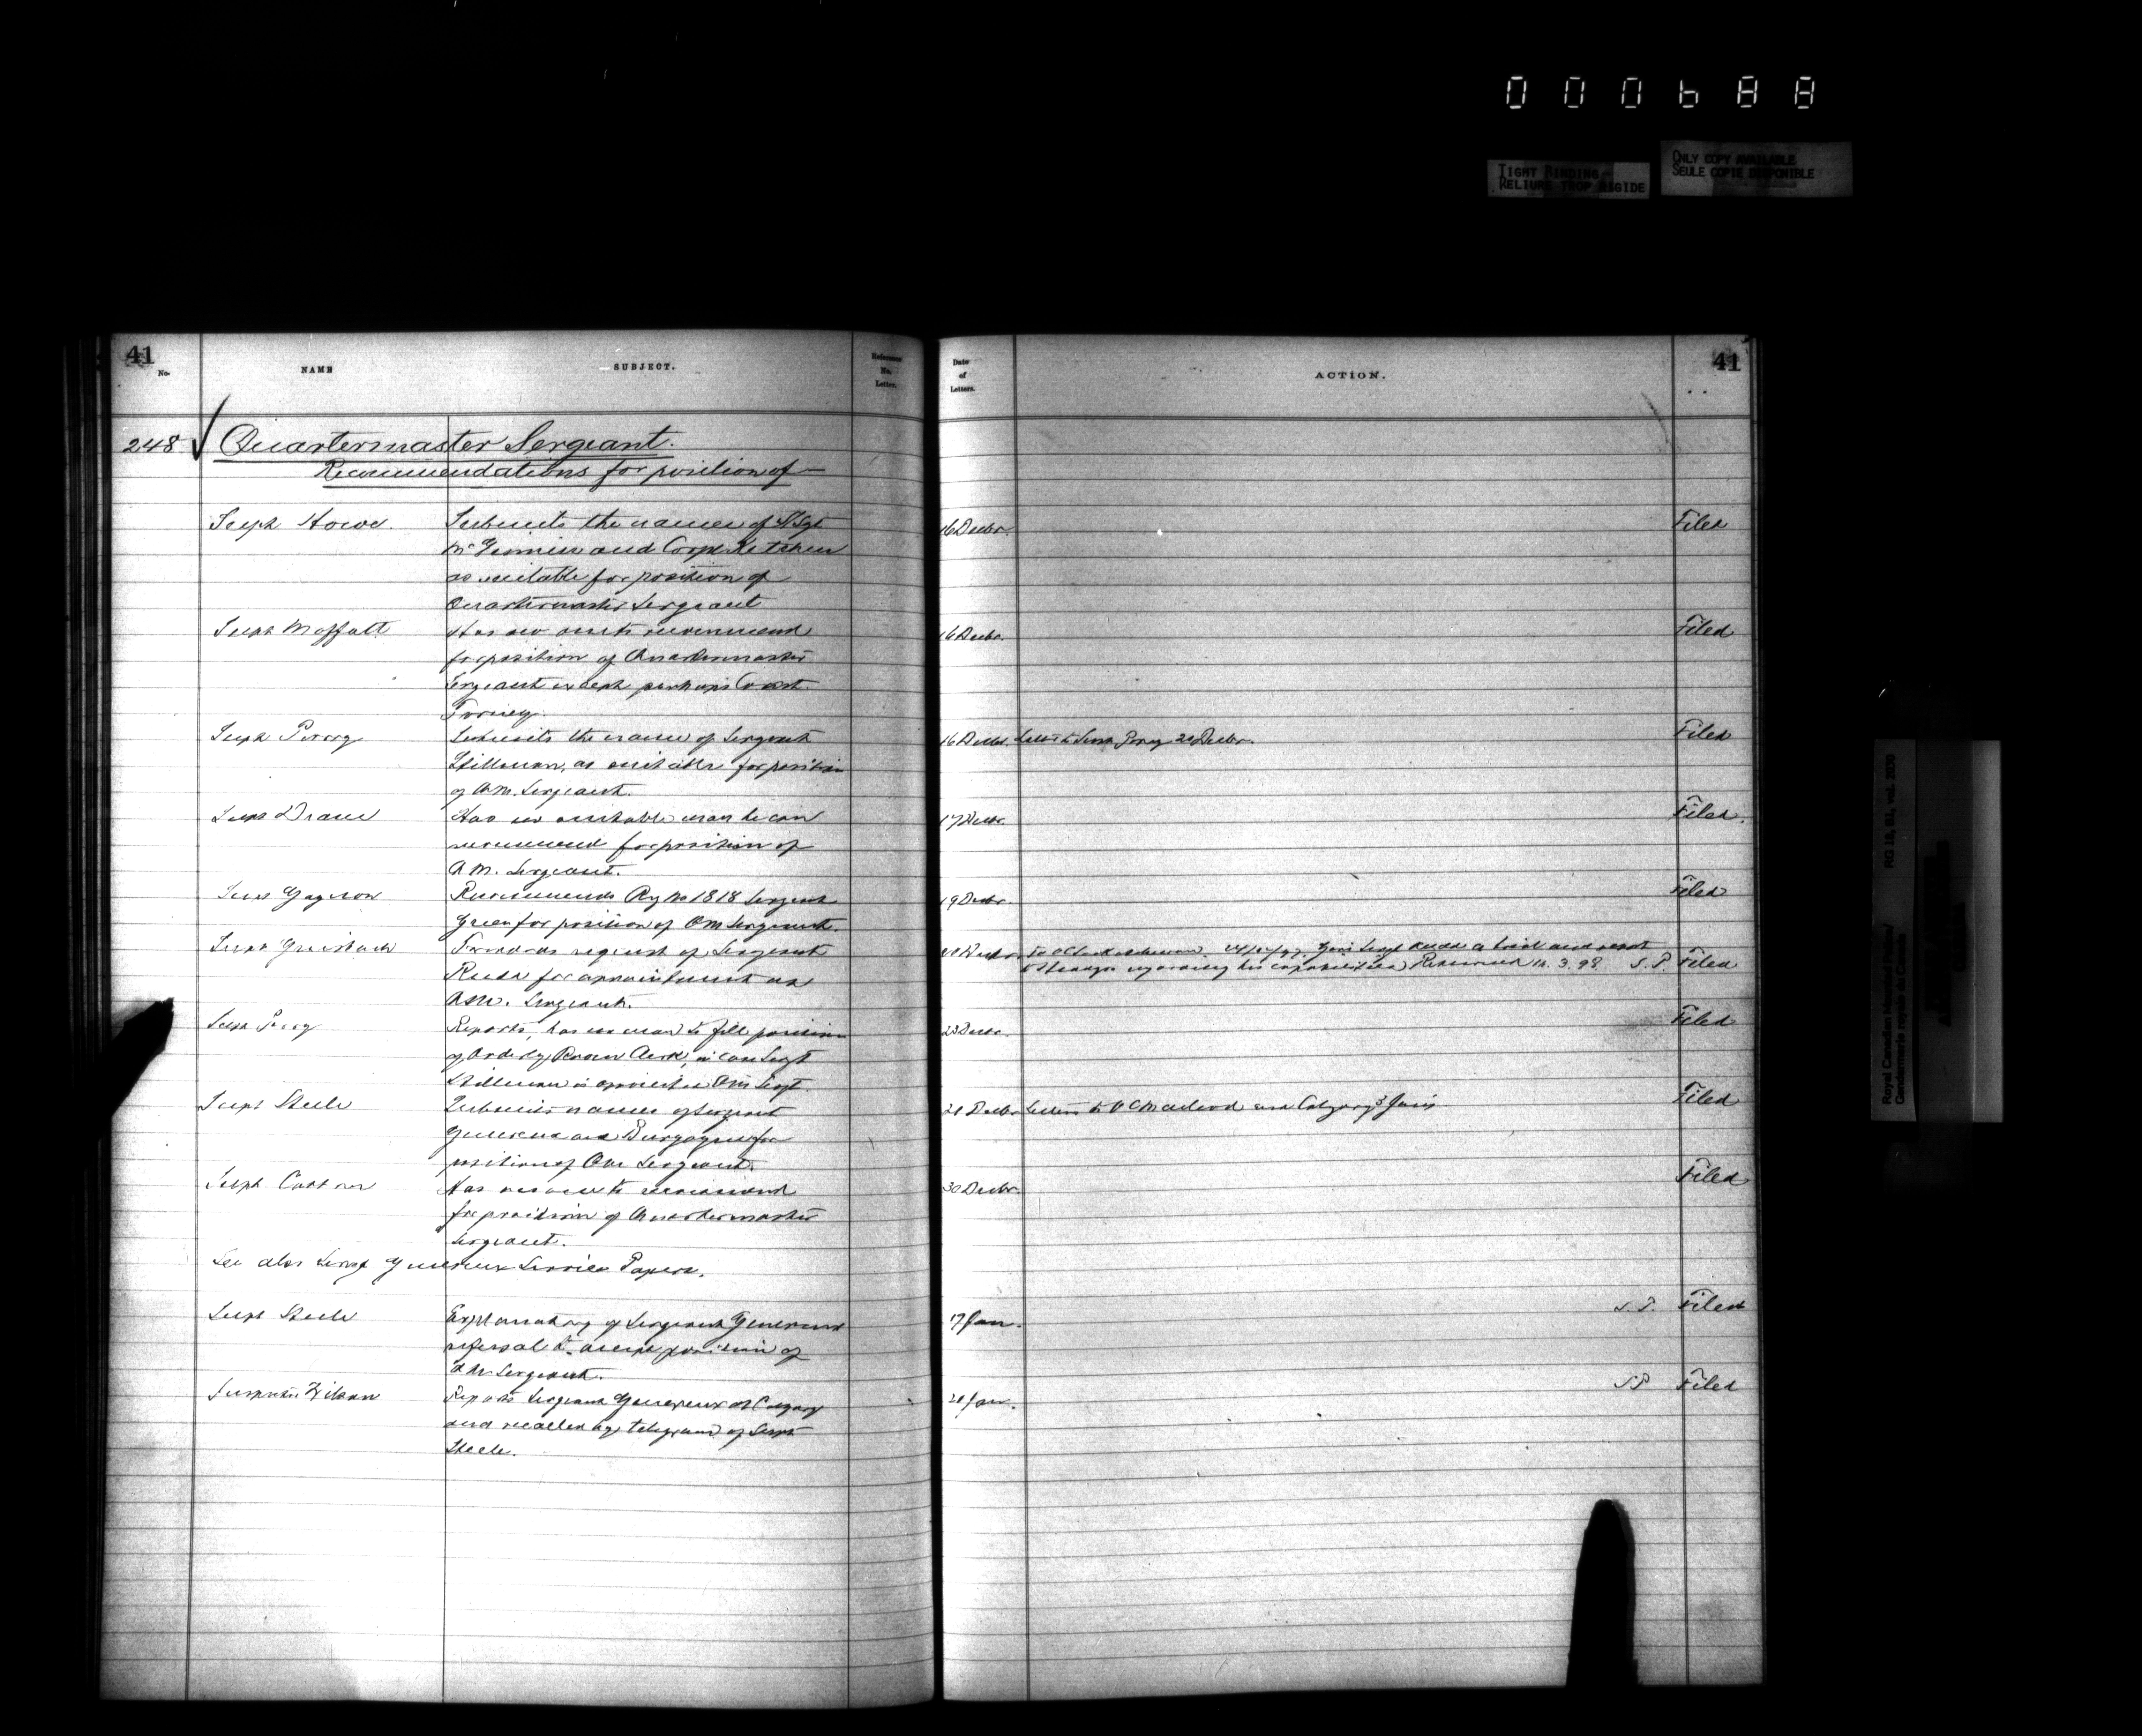 000688
TIGHT BINDING
RELIURE TROP RIGIDE
ONLY COPY AVAILABLE
SEULE COPIE DISPONIBLE
41
No.
NAME
SUBJECT.
Reference
No.
Letter.
Date
of
Letters.
ACTION.
41
248 ✓ Quartermaster Sergeant.
Recommendations for position of
Supt Howe. Submits the names of S/Sgt 16 Decbr. Filed
McGinnis and Corpl
as suitable for position of
Quartermaster Sergeant
Supt Moffatt Has no one to recommend 16 Decbr. Filed
for position of Quartermaster
Sergeant except perhaps Const.
Forney.
Supt Perry Submits the name of Sergeant 16 Decbr. Letter to Supt Perry 20 Decbr. Filed
Stillman, as suitable for position
of Q.M. Sergeant.
Supt Deane Has no suitable man he can 17 Decbr. Filed.
recommend for position of
Q.M. Sergeant.
Supt Gagnon Recommends Reg No 1818 Sergeant 19 Decbr. Filed
Green for position of QM Sergeant.
Supt Griesbach Forwards request of Sergeant Decbr. To OC Saskatchewan. Give Sergt Rudd a trial and report
Rudd for appointment as regarding his capabilities Returned 14.3.98. S.P. Filed
QM. Sergeant.
Supt Perry Reports, has no man to fill position 23 Decbr. Filed
of Orderly Room Clerk, in case Sergt
Stillman is appointed QM Sergt.
Supt Steele Submits names of Sergeant 21 Decbr Letters to OC Macleod and Calgary 3 Jan. Filed
Genereux and Burgoyne for
position of QM Sergeant.
Supt Cotton Has no one to recommend 30 Decbr. Filed
for position of Quartermaster
Sergeant.
See also Sergt Genereux Service Papers.
Supt Steele Explanatory of Sergeant Genereux 17 Jan. S.P. Filed
refusal to accept position of
QM Sergeant.
Inspector Wilson Reports Sergeant Genereux at Calgary 21 Jan. S.P. Filed
and recalled by telegram of Supt
Steele.
Royal Canadian Mounted Police/
Gendarmerie royale du Canada
RG 18, B1, vol. 2030